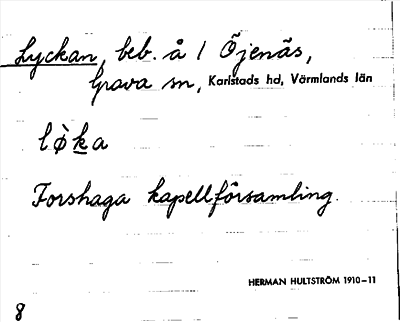 Lyckan, beb. å 1 Öjenäs,
Grava sn, Karlstads hd, Värmlands län
lø̀ka
Forshaga kapellförsamling.
HERMAN HULTSTRÖM 1910–11
8